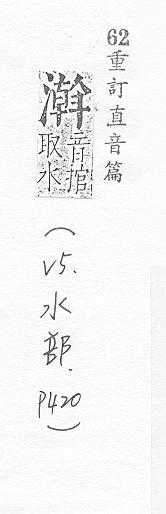 62
重訂直音篇
濣
音捾
取水
(V5.水部.P420)